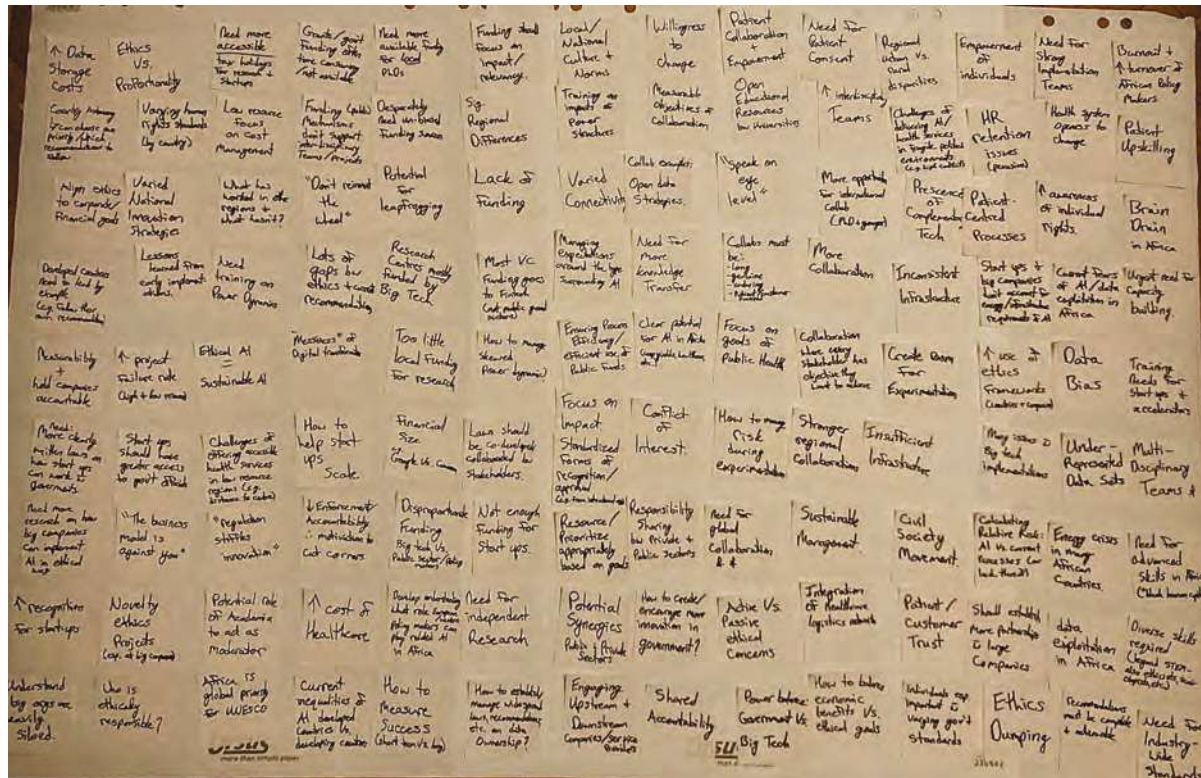 ↑ Data
Storage
Costs
Ethics
Vs.
Proportionality
Need more
accessible
tax holidays
for research +
Startups
Grants/gov't
Funding often
time consuming
/not available
Need more
available funding
for local
PhDs
Funding should
focus on
impact/
relevancy.
Local/
National
Culture +
Norms
Willingness
to
change
Patient
Collaboration
+
Empowerment
Need for
Patient
Consent
Regional
urban vs.
rural
disparities
Empowerment
of individuals
Need for
Strong
Implementation
Teams
Burnout +
↑ turnover of
African Policy
Makers
Varying human
rights standards
(by country)
Low resource
focus
on cost
Management
Funding (public)
Mechanisms
don't support
interdisciplinary
Teams/projects
Desperately
need un-biased
Funding sources
Sig.
Regional
Differences
Training on
impacts of
Power
Structures
Measurable
Objectives of
Collaboration
Open
Educational
Resources
by Universities
↑ interdisciplinary
Teams
Challenges of
delivering AI/
health services
in fragile political
environments
HR
retention
issues
(pensions)
Health system
openness to
change
Patient
Upskilling
Align ethics
to corporate/
Financial goals
Varied
National
Innovation
Strategies
What has
worked in other
regions +
what hasn't?
"Don't reinvent
the
wheel"
Potential
for
leapfrogging
Lack of
Funding
Varied
Connectivity
Collab examples:
Open data
Strategies.
"Speak on
eye
level"
More opportunity
for international
Collab
Presence
of
Complementary
Tech
Patient-
Centred
Processes
↑ awareness
of individual
rights.
Brain
Drain
in Africa
Developed countries
need to lead by
example
(e.g. follow their
own recommendations)
Lessons
learned from
early implement-
ations.
Need
training on
Power Dynamics
Lots of
gaps b/w
ethics + current
recommendations
Research
Centres mostly
funded by
Big Tech
Most VC
Funding goes
to Fintech
(not public good
sectors)
Managing
expectations
around the hype
surrounding AI
Need for
more
knowledge
Transfer
Collabs must
be:
- long
- genuine
- enduring
More
Collaboration
Inconsistent
Infrastructure
Start ups +
big companies
don't account for
energy/infrastructure
requirements of AI
Current fears
of AI/data
exploitation in
Africa
Urgent need for
Capacity
building.
Measurability
+
hold companies
accountable
↑ project
Failure rate
Ethical AI
=
Sustainable AI
"Messiness" of
Digital transformation
Too little
local Funding
for research
How to manage
skewed
Power dynamics
Ensuring Process
Efficiency/
efficient use of
Public Funds
Clear potential
for AI in Africa
Focus on
goals of
Public Health
Collaboration
where every
stakeholder has
objective they
want to achieve
Create Room
For
Experimentation
↑ use of
ethics
Frameworks
Data
Bias
Training
Needs for
Start ups +
accelerators
Need:
More clearly
written laws on
how start ups
can work w
governments
Start ups
should have
greater access
to gov't officials
Challenges of
offering accessible
health services
in low resource
regions
How to
help start
ups
Scale
Financial
Size
Google Vs. Country
Laws should
be co-developed
collaborated by
Stakeholders.
Focus on
Impact
Standardized
Forms of
recognition/
approval
Conflict
of
Interest.
How to manage
risk
during
experimentation
Stronger
regional
Collaboration
Insufficient
Infrastructure
Many issues w
Big tech
implementations
Under-
Represented
Data Sets
Multi-
Disciplinary
Teams
Need more
research on how
big companies
can implement
AI in ethical
way
"The business
model is
against you"
"regulation
stifles
innovation"
↓ Enforcement/
Accountability
: motivation to
cut corners
Disproportionate
Funding
Big Tech Vs.
Public Sector/Policy
makers
Not enough
Funding for
Start ups.
Resource/
Prioritize
appropriately
based on goals
Responsibility
Sharing
b/w Private +
Public Sectors
need for
global
Collaboration
Sustainable
Management
Civil
Society
Movement.
Calculating
Relative Risk:
AI Vs. current
Processes (or
lack thereof)
Energy crisis
in many
African
Countries.
Need for
advanced
skills in Africa
↑ recognition
for start-ups
Novelty
ethics
Projects
(esp. at big companies)
Potential role
of Academia
to act as
Moderator
↑ cost of
Healthcare
Need for
independent
Research
Potential
Synergies
Public + Private
Sectors
How to create/
encourage more
innovation in
government?
Active Vs.
Passive
ethical
Concerns
Integration
of Healthcare
logistics network
Patient/
Customer
Trust
Should establish
More partnerships
w large
Companies
data
exploitation
in Africa
Diverse skills
required
(beyond STEM-
Understand
big orgs are
heavily
siloed.
Who is
ethically
responsible?
Africa is
global priority
for UNESCO
Current
inequalities of
AI developed
Countries Vs.
developing countries
How to
Measure
Success
(short term Vs long)
How to establish/
manage widespread
laws, recommendations,
etc. on data
Ownership?
Engaging
Upstream +
Downstream
Companies/service
Providers
Shared
Accountability
Power balance
Government Vs.
Big Tech
How to balance
economic
benefits Vs.
ethical goals
Individuals resp.
important w
varying gov't
standards
Ethics
Dumping
Recommendations
must be complete
+ actionable
Need for
Industry-
Wide
Standards
more than simple paper